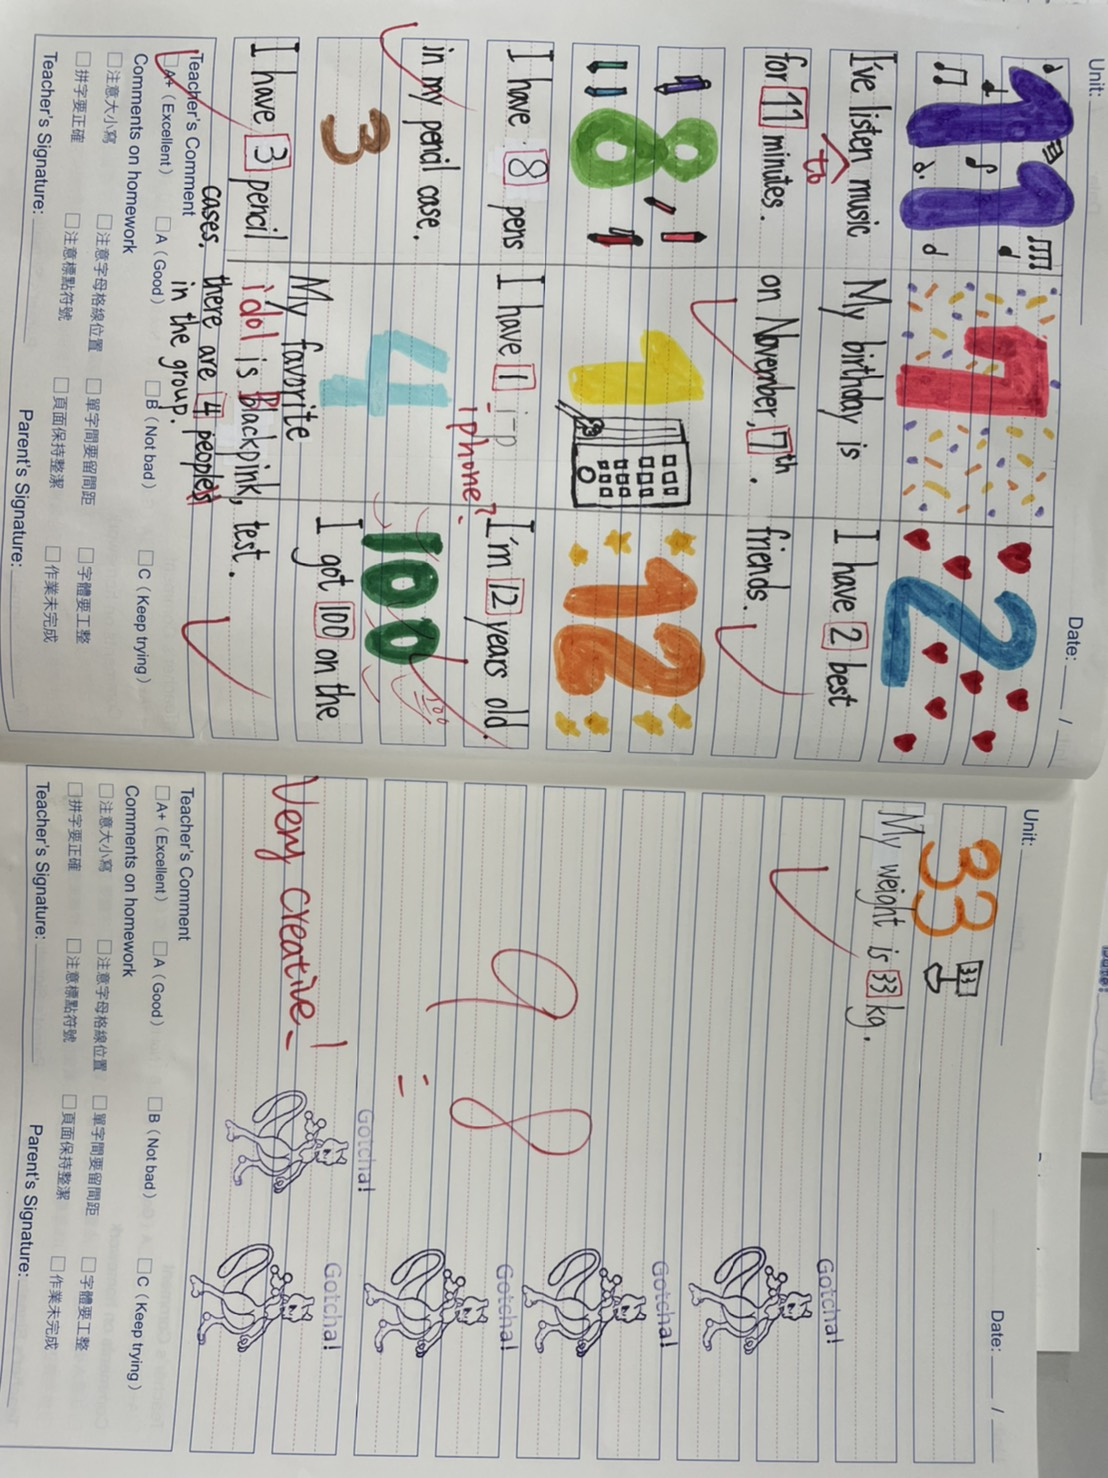 Unit:
Date: /
11
I've listen music
to
for 11 minutes.
7
My birthday is
on November, 7th.
2
I have 2 best
friends.
8
I have 8 pens
in my pencil case.
1
I have 1
iphone?
12
I'm 12 years old.
3
I have 3 pencil
cases.
4
My favorite
idol is Blackpink,
there are 4 peoples
in the group.
100
100
I got 100 on the
test.
Teacher's Comment
□A+ (Excellent) □A (Good) □B (Not bad) □C (Keep trying)
Comments on homework
□注意大小寫 □注意字母格線位置 □單字間要留間距 □字體要工整
□拼字要正確 □注意標點符號 □頁面保持整潔 □作業未完成
Teacher's Signature: Parent's Signature:
Unit:
Date: /
33
33
My weight is 33 kg.
98
Very creative!
Gotcha!
Gotcha!
Gotcha!
Gotcha!
Gotcha!
Teacher's Comment
□A+ (Excellent) □A (Good) □B (Not bad) □C (Keep trying)
Comments on homework
□注意大小寫 □注意字母格線位置 □單字間要留間距 □字體要工整
□拼字要正確 □注意標點符號 □頁面保持整潔 □作業未完成
Teacher's Signature: Parent's Signature: